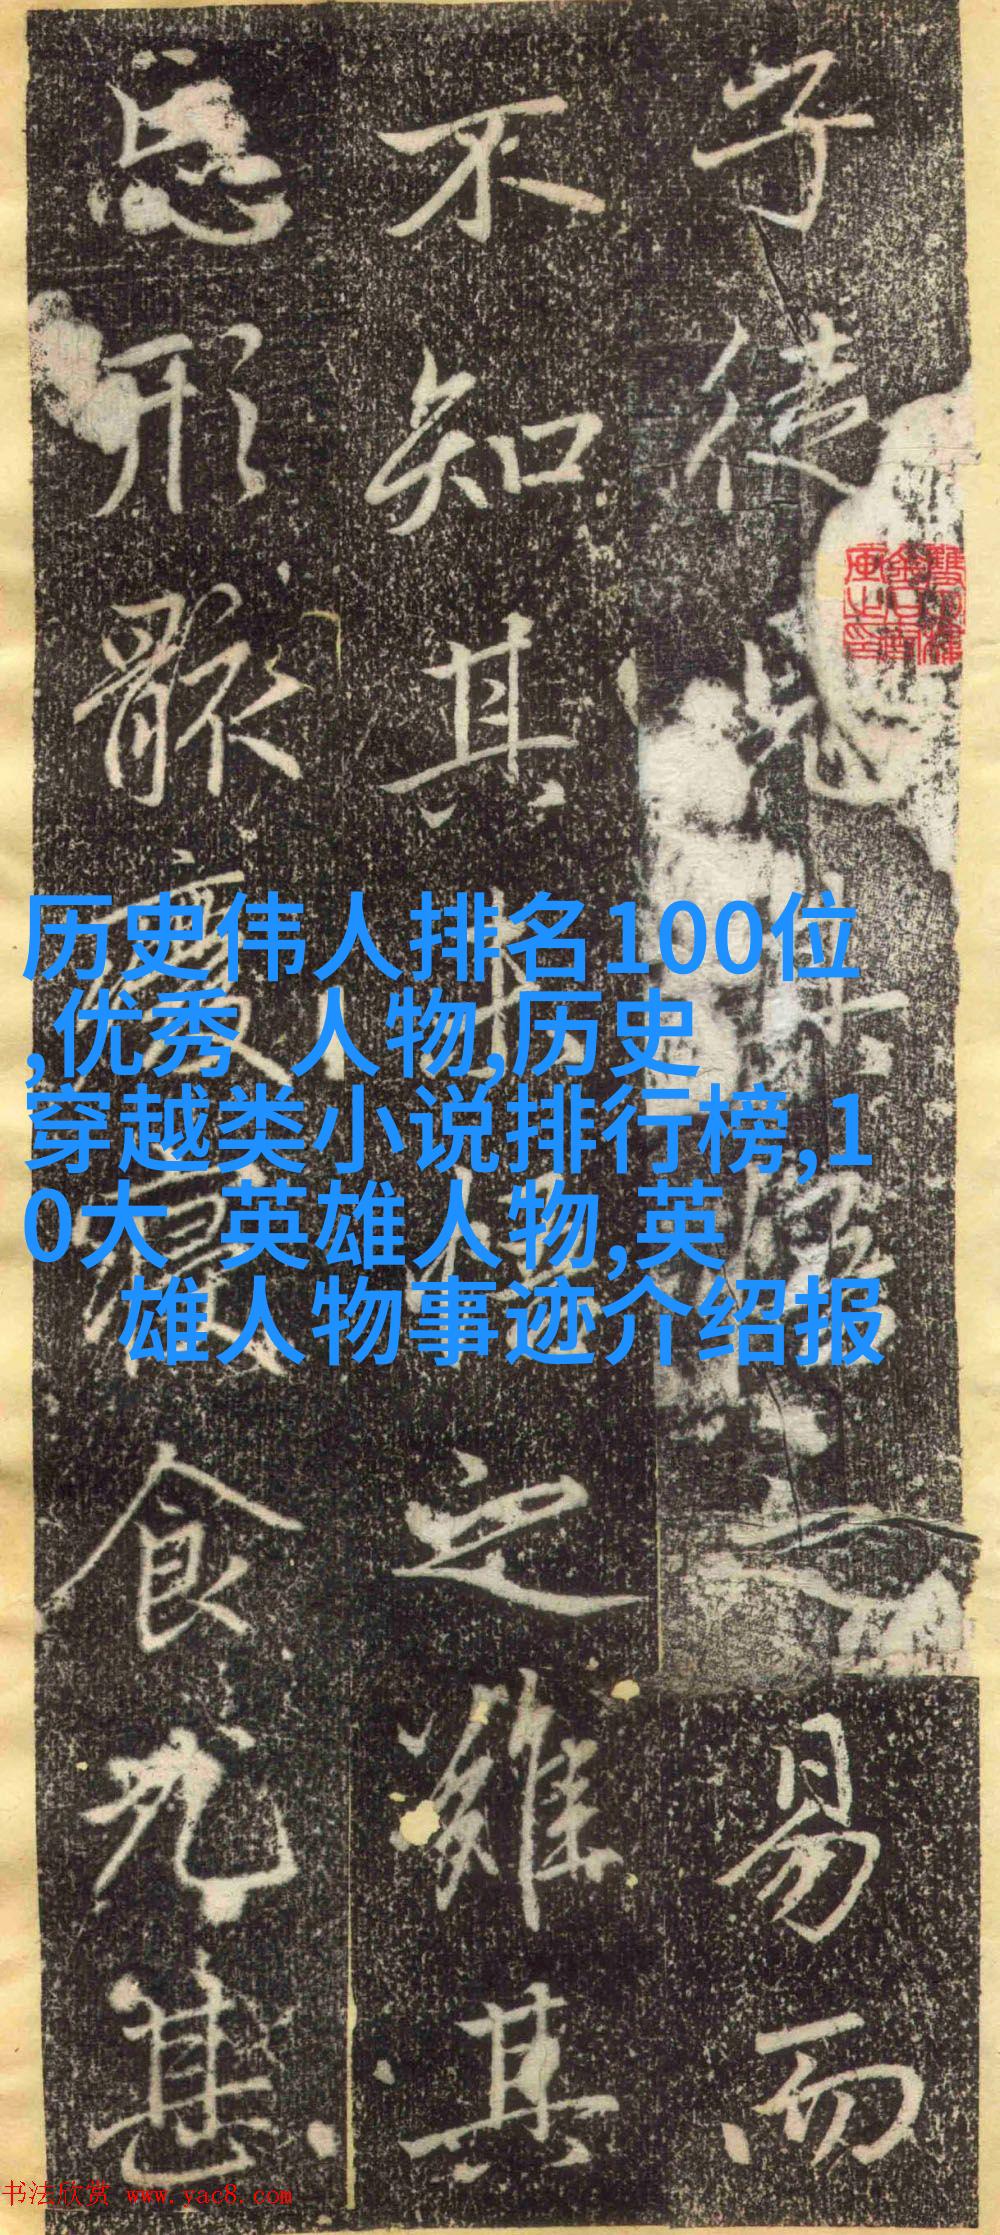 子徒見其
易而
不知其
之難其
忘形骸廢寢食尤甚
历史伟人排名100位
,优秀 人物,历史
穿越类小说排行榜,1
0大 英雄人物,英
雄人物事迹介绍报
书法欣赏 www.yac8.com